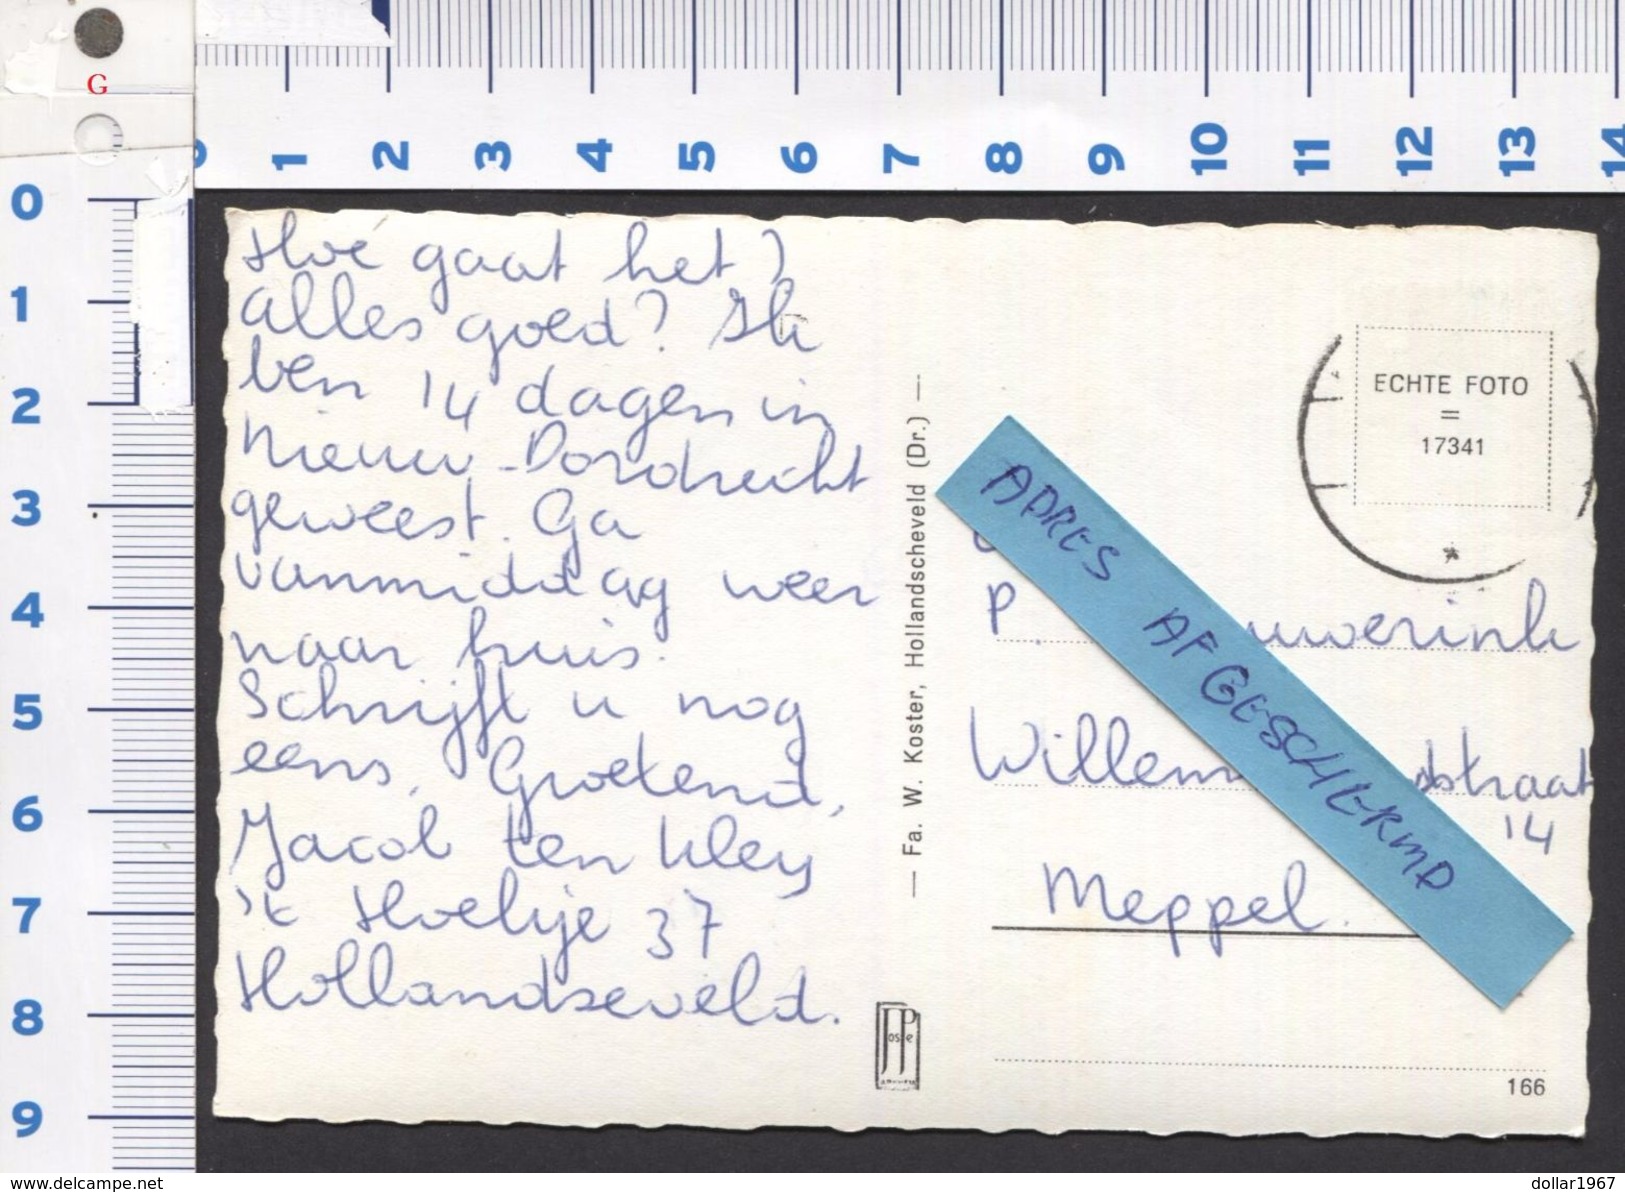 G
0 1 2 3 4 5 6 7 8 9 10 11 12 13 14
0
1
2
3
4
5
6
7
8
9
Hoe gaat het?
alles goed? Ik
ben 14 dagen in
Nieuw-Dordrecht
geweest. Ga
vanmiddag weer
naar huis.
Schrijft u nog
eens. Groetend,
Jacob ten Kley
't Hoekje 37
Hollandseveld.
— Fa. W. Koster, Hollandscheveld (Dr.) —
JosPe
ARNHEM
ECHTE FOTO
=
17341
ADRES AFGESCHERMD
P. uwerink
Willem straat
14
Meppel.
166
www.delcampe.net
dollar1967